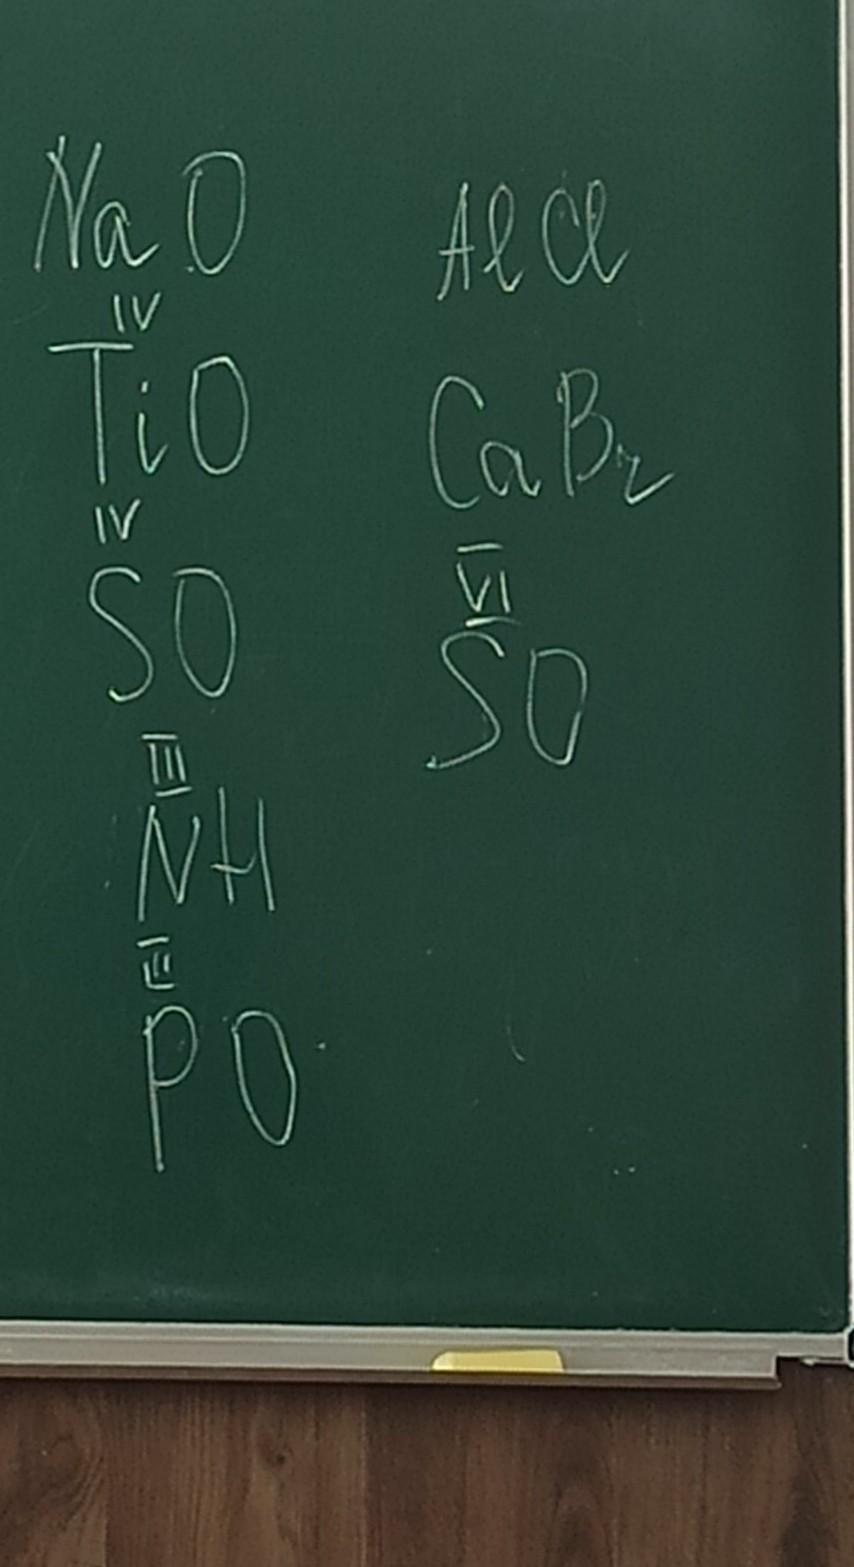 NaO
IV
TiO
IV
SO
III
NH
III
PO
AlCl
CaBr
VI
SO